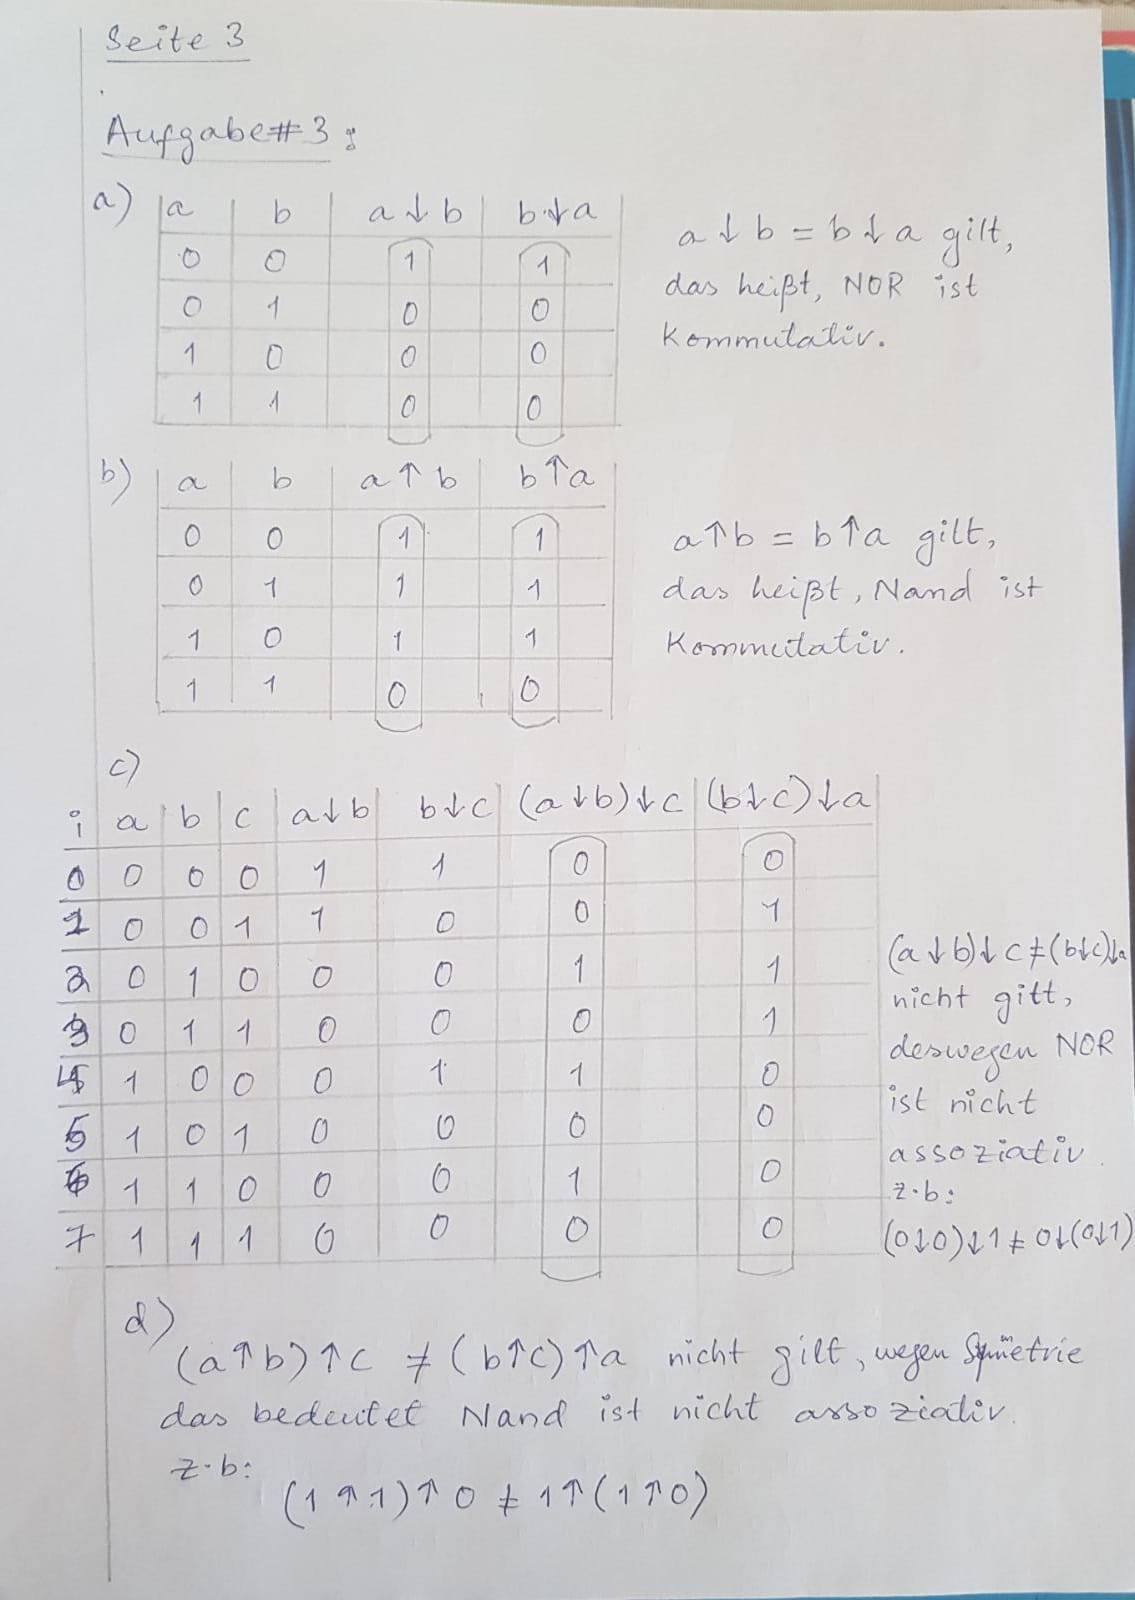 Seite 3
Aufgabe#3:
a) a b a↓b b↓a
0 0 1 1
0 1 0 0
1 0 0 0
1 1 0 0
a↓b = b↓a gilt,
das heißt, NOR ist
Kommutativ.
b) a b a↑b b↑a
0 0 1 1
0 1 1 1
1 0 1 1
1 1 0 0
a↑b = b↑a gilt,
das heißt, Nand ist
Kommutativ.
c)
i a b c a↓b b↓c (a↓b)↓c (b↓c)↓a
0 0 0 0 1 1 0 0
1 0 0 1 1 0 0 1
2 0 1 0 0 0 1 1
3 0 1 1 0 0 0 1
4 1 0 0 0 1 1 0
5 1 0 1 0 0 0 0
6 1 1 0 0 0 1 0
7 1 1 1 0 0 0 0
(a↓b)↓c≠(b↓c)↓a
nicht gilt,
deswegen NOR
ist nicht
assoziativ.
z.b:
(0↓0)↓1≠0↓(0↓1)
d)
(a↑b)↑c ≠ (b↑c)↑a nicht gilt, wegen Symmetrie
das bedeutet Nand ist nicht assoziativ.
z.b:
(1↑1)↑0 ≠ 1↑(1↑0)